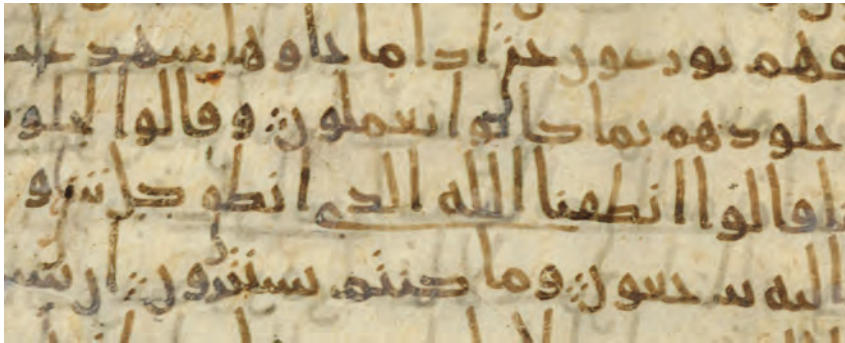 فهم يوزعون حتى اذا ما جاوها شهد
جلودهم بما كانوا يعملون وقالوا لجلو
نا قالوا انطقنا الله الذي انطق كل شي و
اليه ترجعون وما كنتم تستترون ان يش